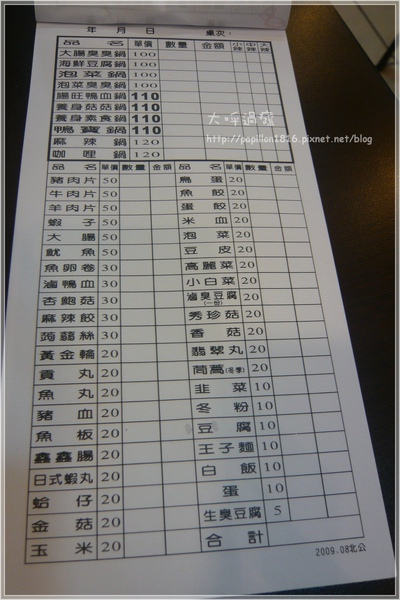 年 月 日 桌次:
品名 單價 數量 金額 小辣 中辣 大辣
大腸臭臭鍋 100
海鮮豆腐鍋 100
泡菜鍋 100
泡菜臭臭鍋 100
腸旺鴨血鍋 110
養身菇菇鍋 110
養身素食鍋 110
鴨寶鍋 110
麻辣鍋 120
咖哩鍋 120
大呼過癮
http://papillon1816.pixnet.net/blog
品名 單價 數量 金額 品名 單價 數量 金額
豬肉片 50 鳥蛋 20
牛肉片 50 魚餃 20
羊肉片 50 蛋餃 20
蝦子 50 米血 20
大腸 50 泡菜 20
魷魚 50 豆皮 20
魚卵卷 30 高麗菜 20
滷鴨血 30 小白菜 20
杏鮑菇 30 滷臭豆腐(一份) 20
麻辣餃 30 秀珍菇 20
蒟蒻絲 30 香菇 20
黃金輪 20 翡翠丸 20
貢丸 20 茼蒿(冬季) 20
魚丸 20 韭菜 10
豬血 20 冬粉 10
魚板 20 豆腐 10
鑫鑫腸 20 王子麵 10
日式蝦丸 20 白飯 10
蛤仔 20 蛋 10
金菇 20 生臭豆腐 5
玉米 20 合計
2009.08北公